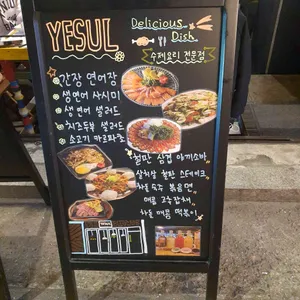 YESUL
Delicious
Dish.
수제요리 전문점
간장 연어장
생연어 사시미
생연어 샐러드
치즈두부 샐러드
소고기 카르파쵸
철판 삼겹 야끼소바
살치살 철판 스테이크
차돌 숙주 볶음면
매콤 고추잡채
차돌 매콤 떡볶이